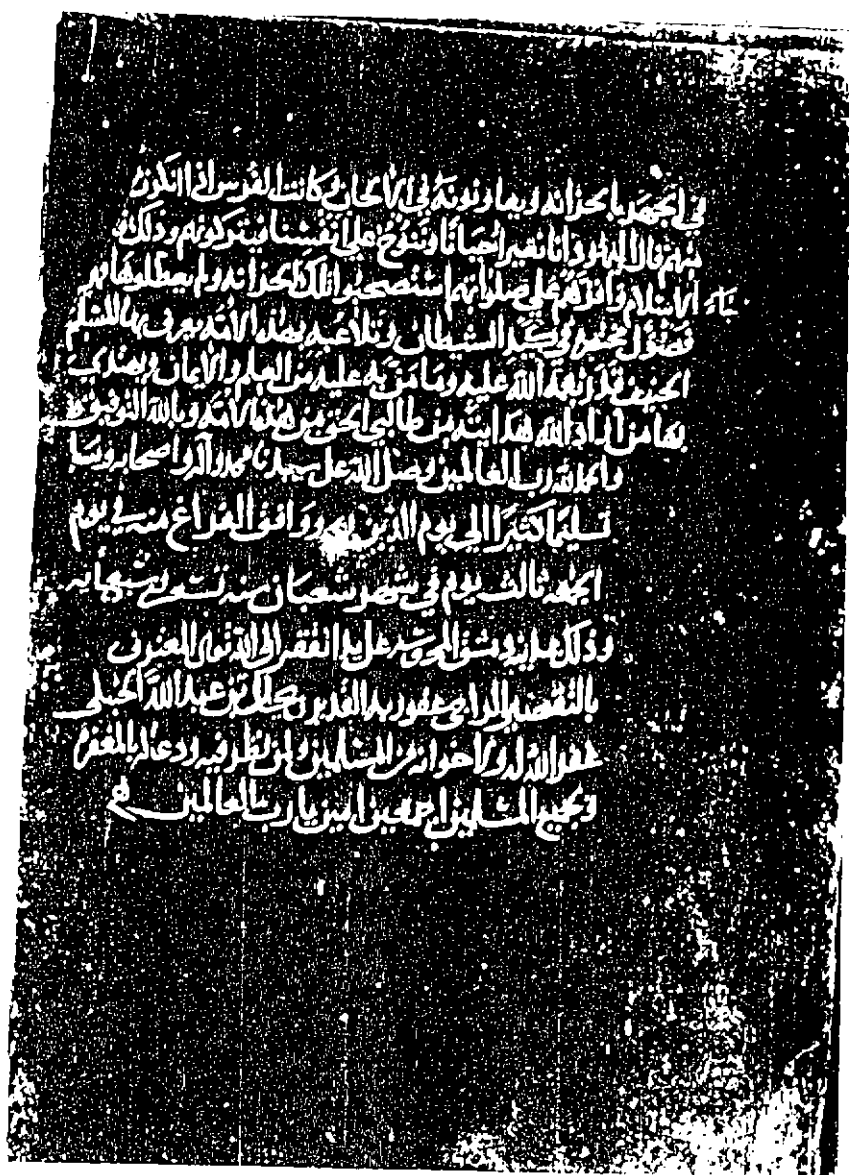 في الجهر بالحزانه ويعاونونه في الالحان وكانت الفرس اذا انكرت
منهم قال اليهود انا نغني احيانا وننوح على انفسنا فيتركونهم وذلك
جاء الاسلام واقرهم على صلواتهم استصحبوا تلك الحزانه ولم يعطلوها فهـ
فصول مختصره في كيد الشيطان وتلاعبه بهذه الامه يعرف بها المسلم
الحنيف قدر نعمة الله عليه وما من به عليه من العلم والايمان ويهتدي
بها من اراد الله هدايته من طالبي الحق من هذه الامه وبالله التوفيق
والحمد لله رب العالمين وصلى الله على سيدنا محمد واله واصحابه وسلم
تسليما كثيرا الى يوم الدين ووافق الفراغ منه في يوم
الجمعه ثالث يوم في شهر شعبان سنه تسع
وذلك بمدينه دمشق المحروسه على يد افقر الى الله تعالى المعترف
بالتقصير الراجي عفو ربه القدير بن عبد الله الحنبلي
غفر الله له ولاخوانه من المسلمين ولمن نظر فيه ودعا له بالمغفره
ولجميع المسلمين اجمعين امين يا رب العالمين